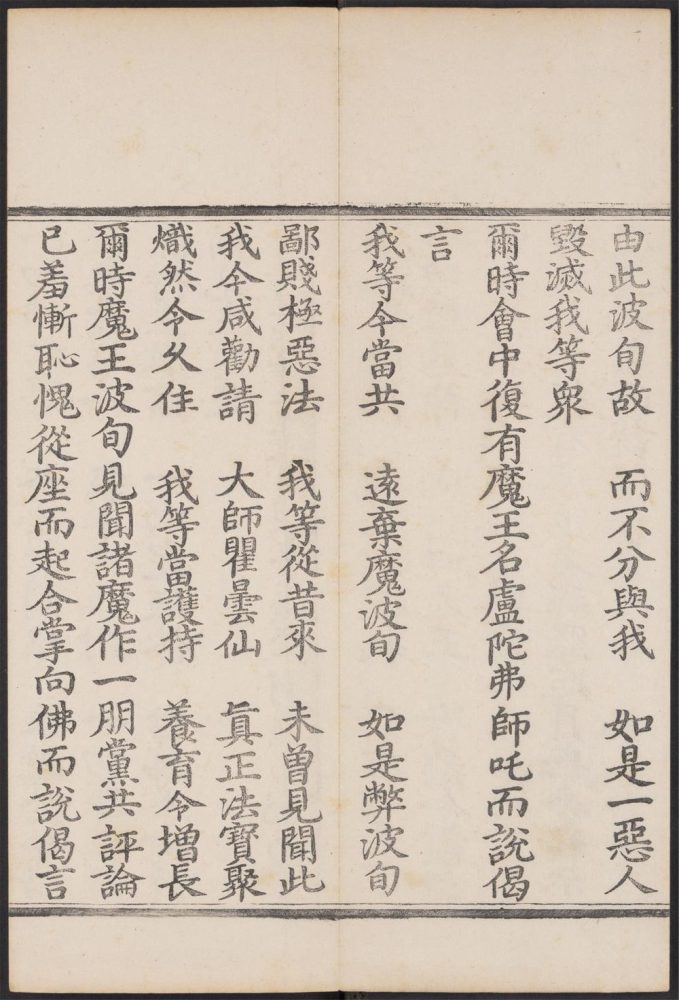 由此波旬故　而不分與我　如是一惡人
毀滅我等衆
爾時會中復有魔王名盧陀弗師吒而說偈
言
我等今當共　遠棄魔波旬　如是弊波旬
鄙賤極惡法　我等從昔來　未曾見聞此
我今咸勸請　大師瞿曇仙　眞正法寶聚
熾然令久住　我等當護持　養育令增長
爾時魔王波旬見聞諸魔作一朋黨共評論
已羞慚恥愧從座而起合掌向佛而說偈言